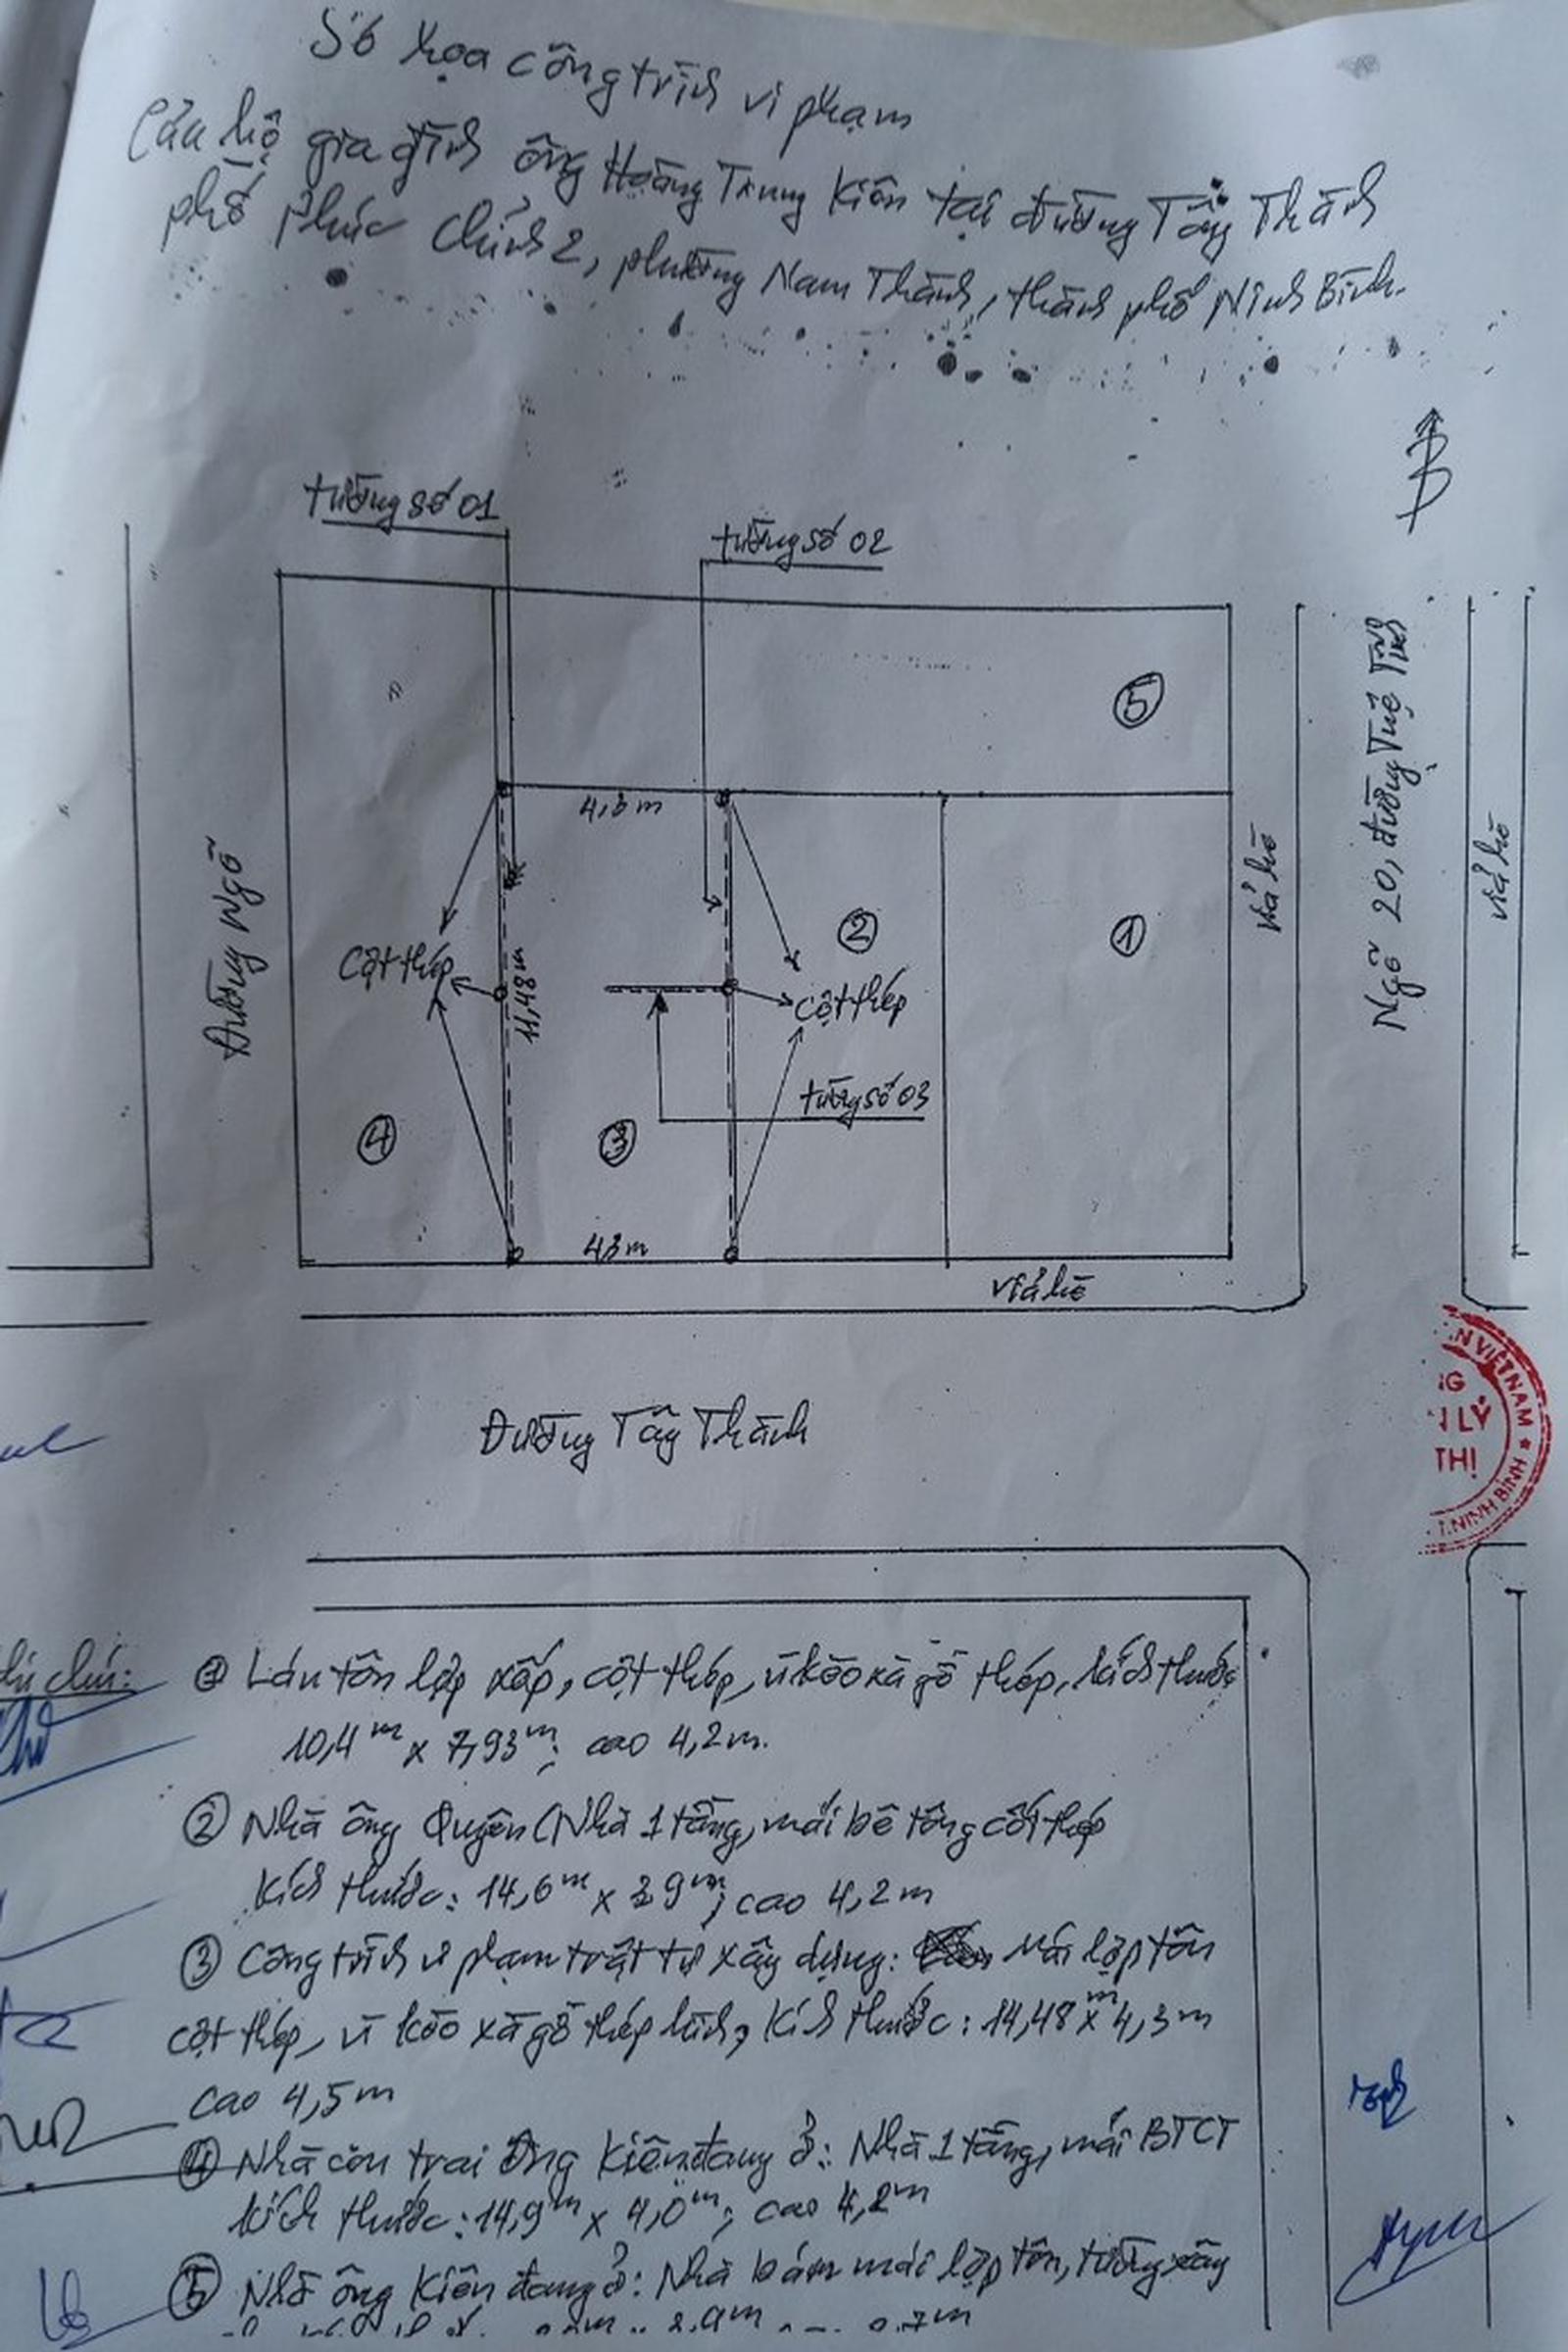 Sơ họa công trình vi phạm
Của hộ gia đình ông Hoàng Trung Kiên tại đường Tây Thành
phố Phúc Chỉnh 2, phường Nam Thành, thành phố Ninh Bình.
B
tường số 01
tường số 02
5
4,3 m
Đường Ngõ
Cột thép
11,48 m
2
1
Cột thép
tường số 03
4
3
4,3 m
vỉa hè
vỉa hè
Ngõ 20, đường Tuệ Tĩnh
vỉa hè
Đường Tây Thành
N VIỆT NAM
NG
N LÝ
THỊ
T. NINH BÌNH
chú:
1 Lán tôn lợp xốp, cột thép, vì kèo xà gồ thép, kích thước
10,4m x 7,93m; cao 4,2m.
2 Nhà ông Quyên (Nhà 1 tầng, mái bê tông cốt thép
Kích thước: 14,6m x 3,9m; cao 4,2m
3 Công trình vi phạm trật tự xây dựng: Mái lợp tôn
cột thép, vì kèo xà gồ thép hình, Kích thước: 14,48m x 4,3m
cao 4,5m
4 Nhà con trai ông Kiên đang ở: Nhà 1 tầng, mái BTCT
kích thước: 14,9m x 4,0m; cao 4,2m
5 Nhà ông Kiên đang ở: Nhà bán mái lợp tôn, tường xây